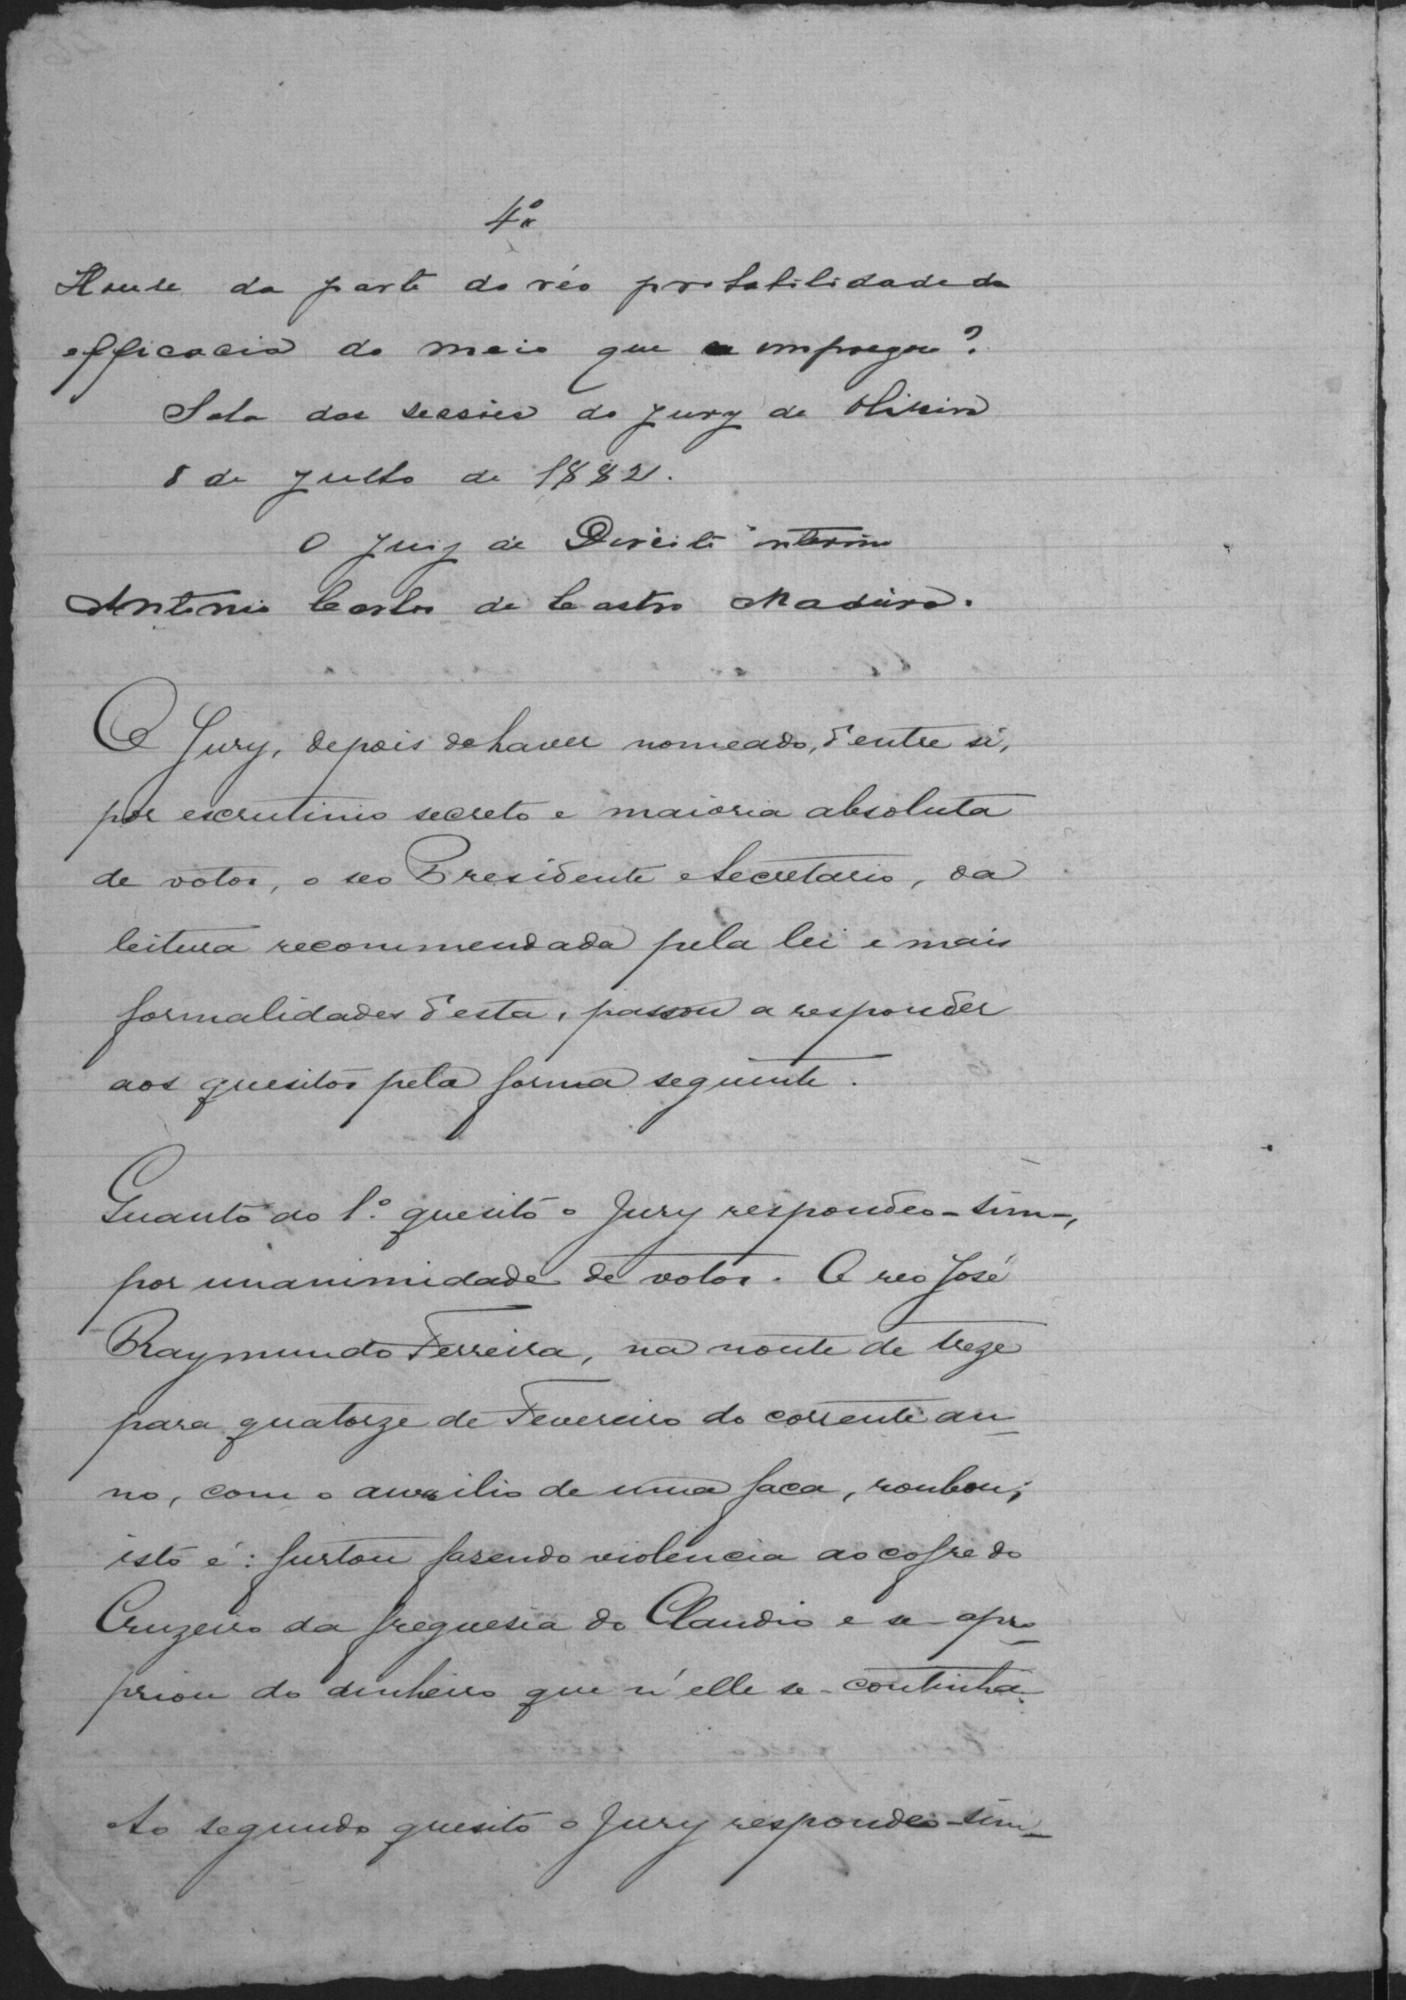 4º
Houve da parte do réo probabilidade da
efficacia do meio que empregou?
Sala das sessões do Jury de Oliveira
8 de Julho de 1882.
O Juiz de Direito interino
Antonio Carlos de Castro Madeira.
O Jury, depois de haver nomeado, d'entre si,
por escrutinio secreto e maioria absoluta
de votos, o seo Presidente e Secretario, da
leitura recommendada pela lei e mais
formalidades d'esta, passou a responder
aos quesitos pela forma seguinte.
Quanto ao 1.º quesito o Jury respondeo - sim -,
por unanimidade de votos. O reo José
Raymundo Ferreira, na noute de treze
para quatorze de Fevereiro do corrente an-
no, com o auxilio de uma faca, roubou;
isto é: furtou fazendo violencia ao cofre do
Cruzeiro da freguesia do Claudio e se apro-
priou do dinheiro que n'elle se continha.
Ao segundo quesito o Jury respondeo - sim -